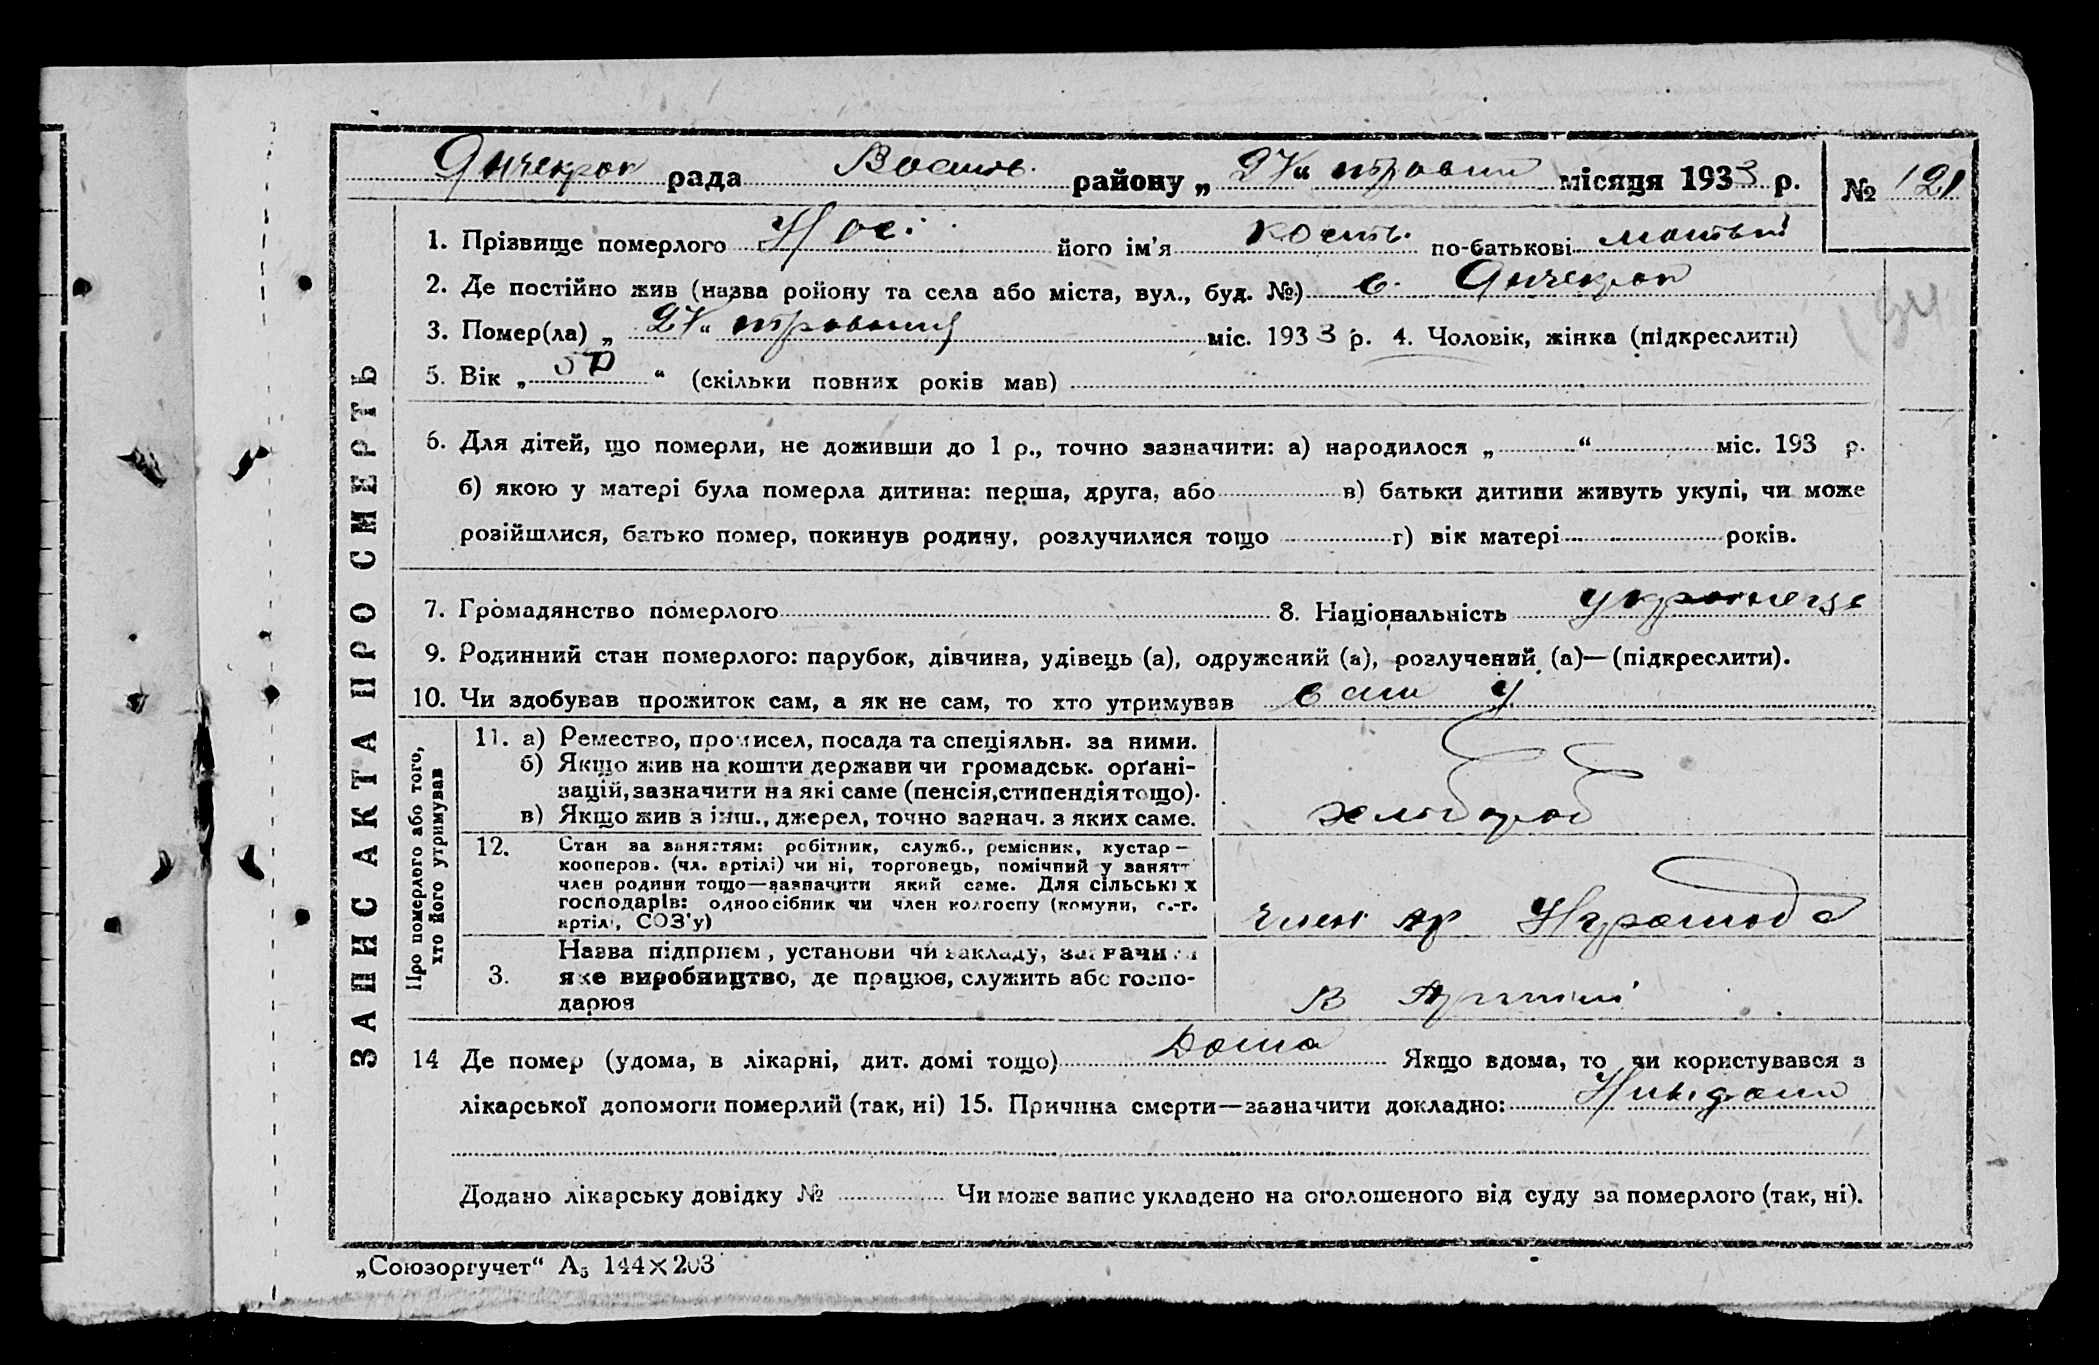 Янчекрак рада Василь. району „ 24 “ травня місяця 1933 р. № 121
1. Прізвище померлого його ім'я Кость по-батькові
2. Де постійно жив (назва ройону та села або міста, вул., буд. №) с. Янчекрак
3. Помер(ла) „ “ травня міс. 1933 р. 4. Чоловік, жінка (підкреслити)
5. Вік „ “ (скільки повних років мав)
6. Для дітей, що померли, не доживши до 1 р., точно зазначити: а) народилося „ “ міс. 193 р.
б) якою у матері була померла дитина: перша, друга, або в) батьки дитини живуть укупі, чи може
розійшлися, батько помер, покинув родину, розлучилися тощо г) вік матері років.
7. Громадянство померлого 8. Національність українець
9. Родинний стан померлого: парубок, дівчина, удівець (а), одружений (а), розлучений (а)—(підкреслити).
10. Чи здобував прожиток сам, а як не сам, то хто утримував сам
ЗАПИС АКТА ПРО СМЕРТЬ
Про померлого або того,
хто його утримував
11. а) Ремество, промисел, посада та спеціяльн. за ними.
б) Якщо жив на кошти держави чи громадськ. орґані-
зацій, зазначити на які саме (пенсія, стипендія тощо).
в) Якщо жив з інш., джерел, точно зазнач. з яких саме.
хлібороб
12. Стан за заняттям: робітник, служб., ремісник, кустар—
кооперов. (чл. артілі) чи ні, торговець, помічний у занятт
член родини тощо—зазначити який саме. Для сільських
господарів: одноосібник чи член колгоспу (комуни, с.-г.
артілі, СОЗ'у)
член ар
3. Назва підприєм, установи чи закладу, зазначити
яке виробництво, де працює, служить або госпо-
дарює
В Артілі
14 Де помер (удома, в лікарні, дит. домі тощо) Дома Якщо вдома, то чи користувався з
лікарської допомоги померлий (так, ні) 15. Причина смерти—зазначити докладно:
Додано лікарську довідку № Чи може запис укладено на оголошеного від суду за померлого (так, ні).
„Союзоргучет“ А5 144×203